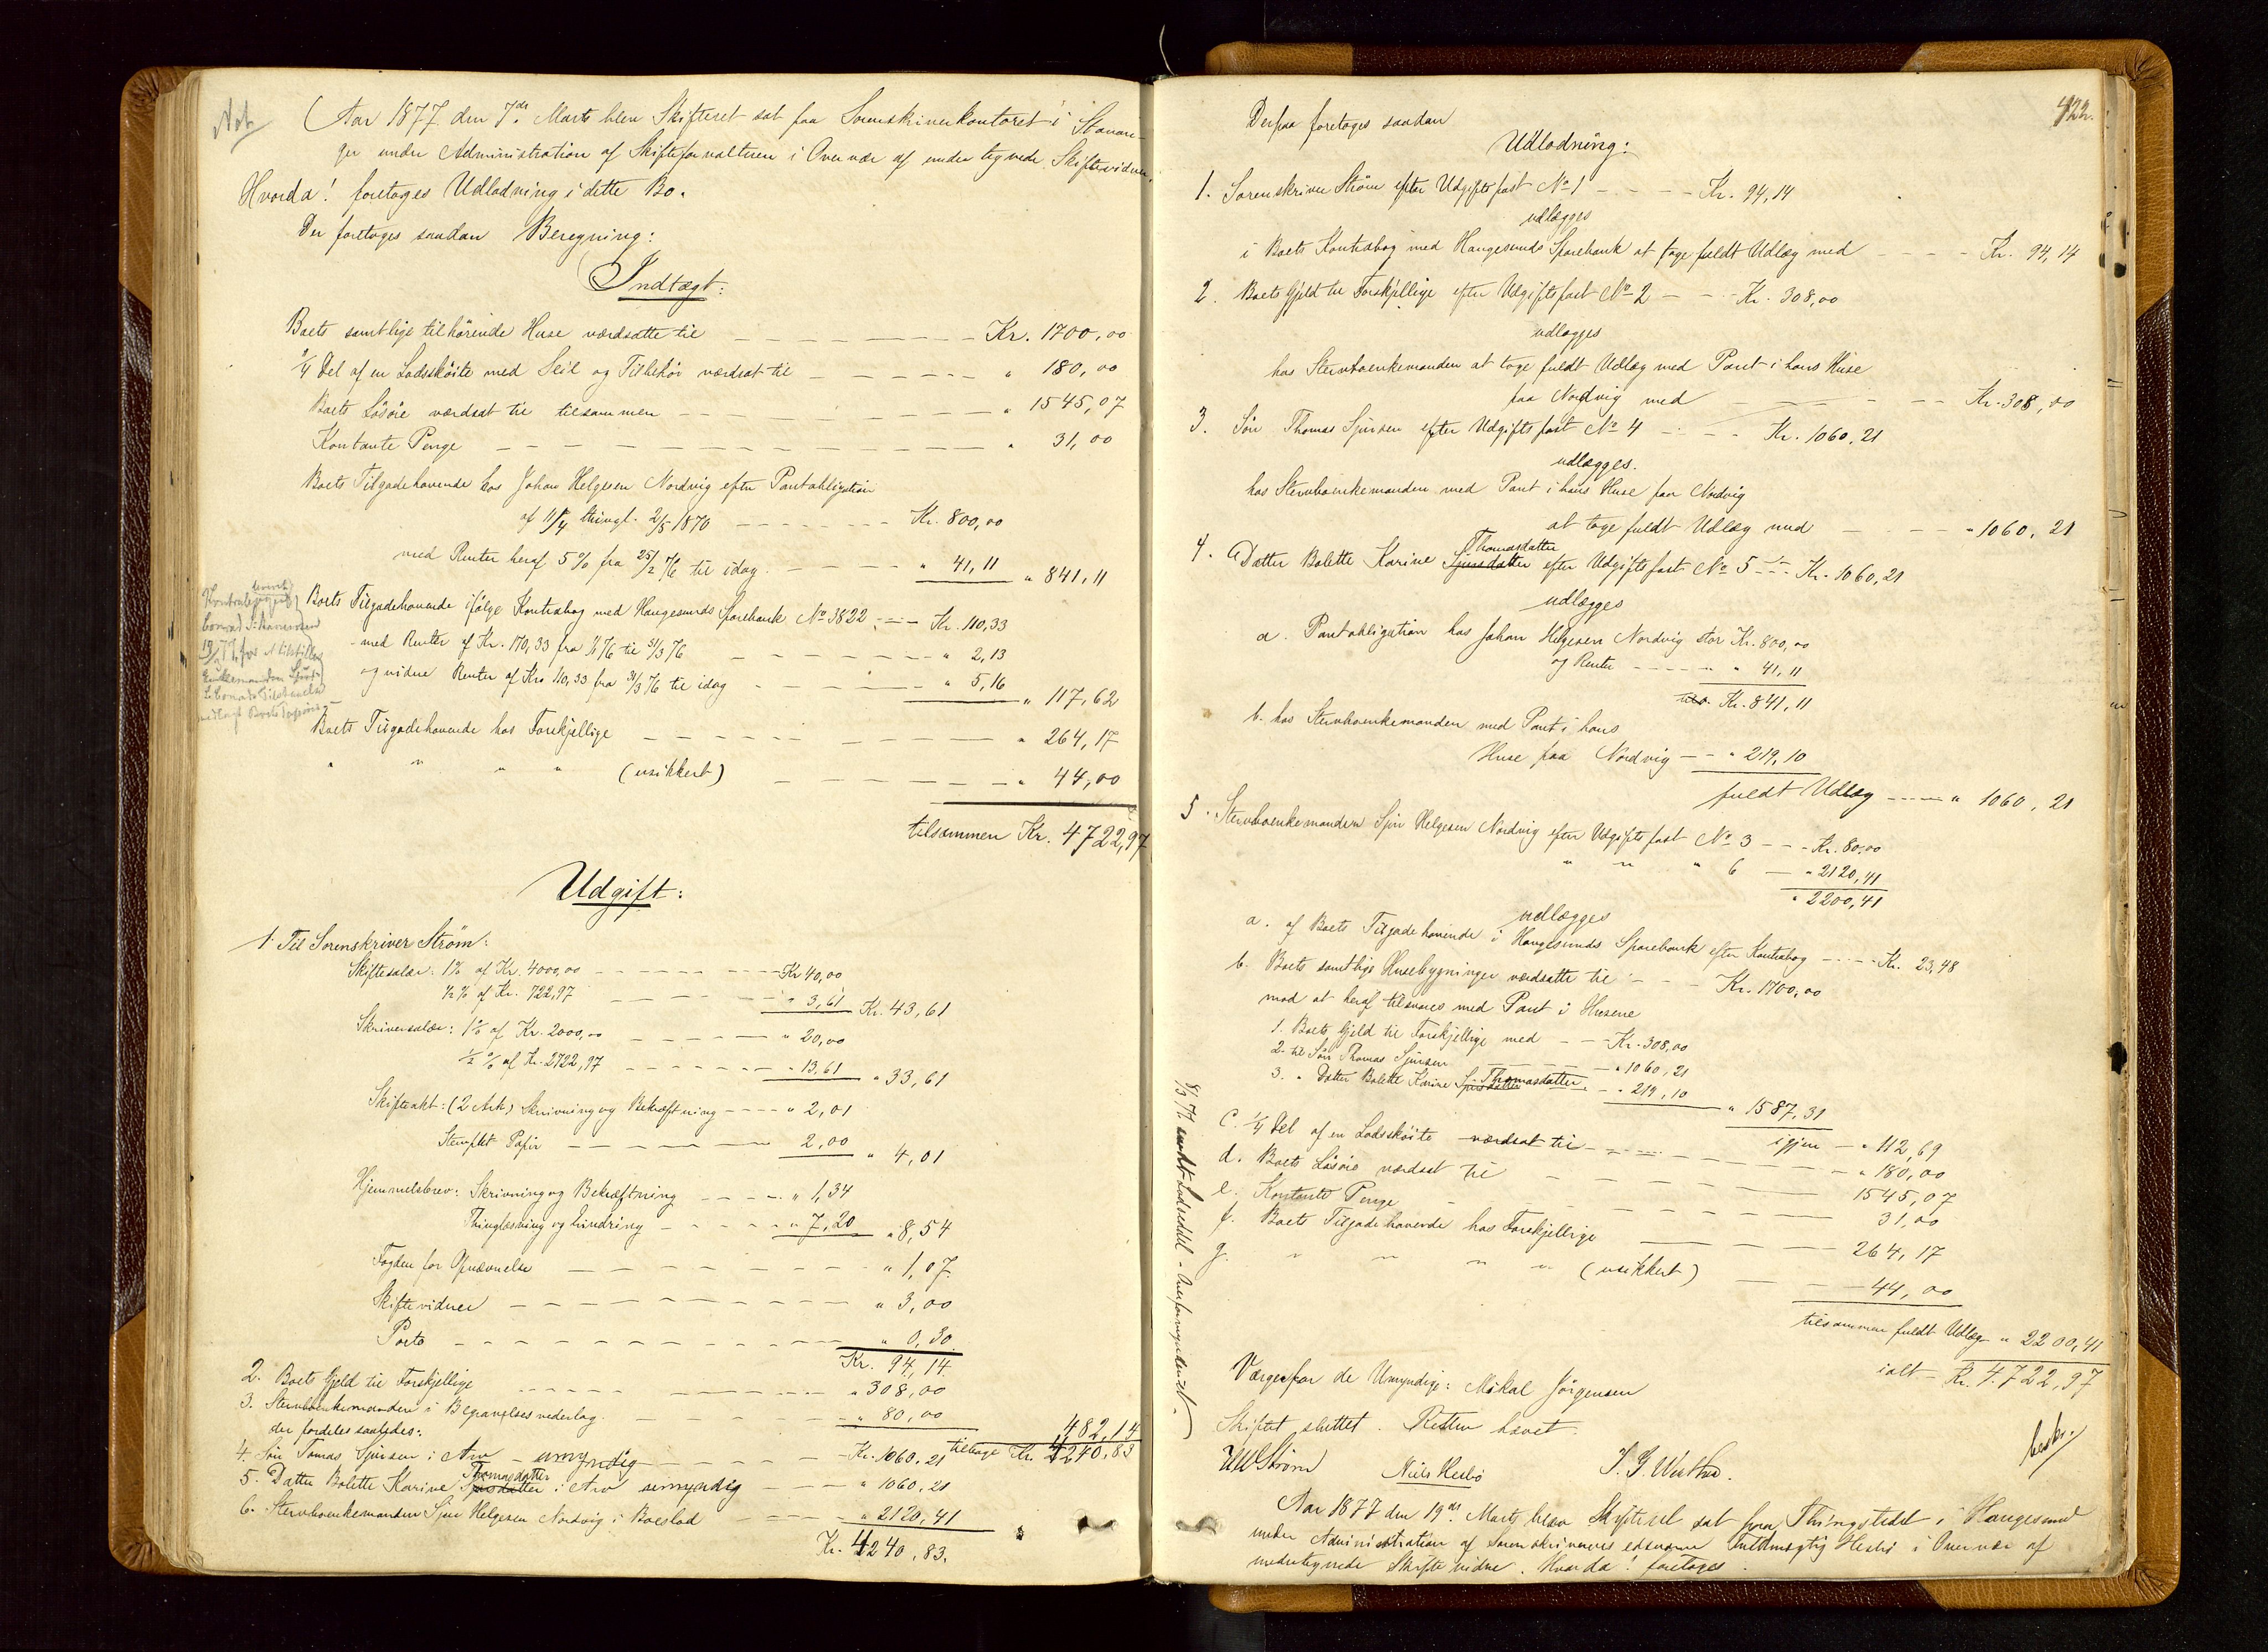 Aar 1877 den 7de Marts blev Skifteret sat paa Sorenskriverkontoret i Stavan-
ger under Administration af Skifteforvalteren i Overvær af undertegnede Skiftevidner.
Hvorda! foretoges Udlodning i dette Bo.
Der foretoges saadan Beregning:
Indtægt:
Boets samtlige tilhörende Huse værdsatte til — Kr. 1700,00
1/4 Del af en Lodssköite med Seil og Tilbehör værdsat til — " 180,00
Boets Lösöre værdsat til tilsammen — " 1545,07
Kontante Penge — " 31,00
Boets Tilgodehavende hos Johan Helgesen Nordvig efter Pantobligation
af 11/4 thingl. 2/5 1870 — Kr. 800,00
med Renter heraf 5% fra 25/2 76 til idag — " 41,11 " 841,11
Boets Tilgodehavende ifölge Kontrabog med Haugesunds Sparebank No 3822 — Kr. 110,33
med Renter af Kr. 170,33 fra 1/1 76 til 31/3 76 — " 2,13
og videre Renter af Kr. 110,33 fra 31/3 76 til idag — " 5,16 " 117,62
Boets Tilgodehavende hos Forskjellige — " 264,17
" " " " (usikkert) — " 44,00
tilsammen Kr. 4722,97
Udgift:
1. Til Sorenskriver Ström:
Skiftesalær: 1% af Kr. 4000,00 — Kr 40,00
1/2 % af Kr. 722,97 — " 3,61 Kr. 43,61
Skriversalær: 1% af Kr. 2000,00 — " 20,00
1/2 % af Kr. 2722,97 — " 13,61 " 33,61
Skifteakt: (2 Ark) Skrivning og Bekræftning — " 2,01
Stemplet Papir — 2,00 " 4,01
Hjemmelsbrev: Skrivning og Bekræftning — " 1,34
Thinglæsning og Lindring — " 7,20 " 8,54
Fogden for Opnævnelse — " 1,07
Skiftevidner — " 3,00
Porto — " 0,30
Kr. 94,14
2. Boets Gjeld til Forskjellige — " 308,00
3. Stervboenkemanden i Begravelsesvederlag — " 80,00 482,14
tilbage Kr. 4240,83
der fordeles saaledes:
4. Sön Tomas Sjursen i Arv - umyndig — Kr. 1060,21
5. Datter Bolette Karine Thomasdatter i Arv umyndig — " 1060,21
6. Stervboenkemanden Sjur Helgesen Nordvig i Boeslod — " 2120,41
Kr. 4240,83.
422.
Derpaa foretoges saadan
Udlodning:
1. Sorenskriver Ström efter Udgiftspost No 1 — Kr. 94,14
udlægges
i Boets Kontrabog med Haugesunds Sparebank at tage fuldt Udlæg med — Kr. 94,14
2. Boets Gjeld til Forskjellige efter Udgiftspost No 2 — Kr. 308,00
udlægges
hos Stervboenkemanden at tage fuldt Udlæg med Pant i hans Huse
paa Nordvig med — Kr. 308,00
3. Sön Thomas Sjursen efter Udgiftspost No 4 — Kr. 1060,21
udlægges.
hos Stervboenkemanden med Pant i hans Huse paa Nordvig
at tage fuldt Udlæg med — " 1060,21
4. Datter Bolette Karine Thomasdatter efter Udgiftspost No 5 — Kr. 1060,21
udlægges
a. Pantobligation hos Johan Helgesen Nordvig stor Kr. 800,00
og Renter — " 41,11
Kr. 841,11
b. hos Stervboenkemanden med Pant i hans
Huse paa Nordvig — " 219,10
fuldt Udlæg — " 1060,21
5. Stervboenkemanden Sjur Helgesen Nordvig efter Udgiftspost No 3 — Kr. 80,00
" " " 6 — " 2120,41
" 2200,41
udlægges
a. af Boets Tilgodehavende i Haugesunds Sparebank efter Kontrabog — Kr. 23,48
b. Boets samtlige Husebygninger værdsatte til — Kr. 1700,00
mod at heraf tilsvares med Pant i Husene
1. Boets Gjeld til Forskjellige med — Kr. 308,00
2. til Sön Thomas Sjursen — " 1060,21
3. " Datter Bolette Karine Thomasdatter — " 219,10 " 1587,31
igjen — " 112,69
c. 1/4 Del af en Lodssköite værdsat til — " 180,00
d. Boets Lösöre værdsat til — 1545,07
e. Kontante Penge — 31,00
f. Boets Tilgodehavende hos Forskjellige — 264,17
g. " " " " (usikkert) — 44,00
tilsammen fuldt Udlæg " 2200,41
ialt — Kr. 4722,97
Værge for de Umyndige: Mikal Jörgensen
Skiftet sluttet. Retten hævet.
Ström Niels Hesbö
Aar 1877 den 19de Marts blev Skifteret sat paa Thingstedet i Haugesund
under Administration af Sorenskriverens edsvorne Fuldmægtig Hesbö i Overvær af
undertegnede Skiftevidne. Hvorda! foretoges